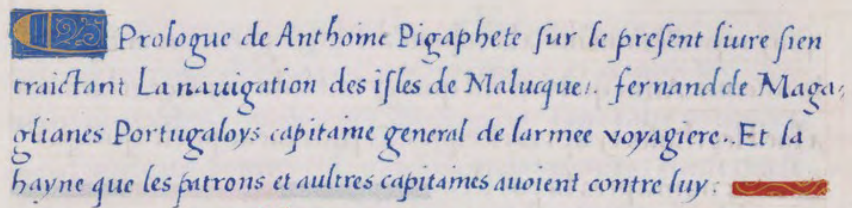 Prologue de Anthoine Pigaphete ſur le preſent liure ſien
traictant La nauigation des iſles de Malucque:. fernand de Maga-
glianes Portugaloys capitaine general de larmee voyagiere.. Et la
hayne que les patrons et aultres capitaines auoient contre luy: